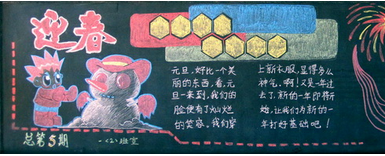 迎春
总第5期
一(2)班宣
元旦,好比一个美
丽的东西,看,元
旦一来到,我们的
脸便有了灿烂
的笑容。我们穿
上新衣服,显得多么
神气。啊!又是一年过
去了,新的一年即将开
始,让我们为新的一
年打好基础吧!